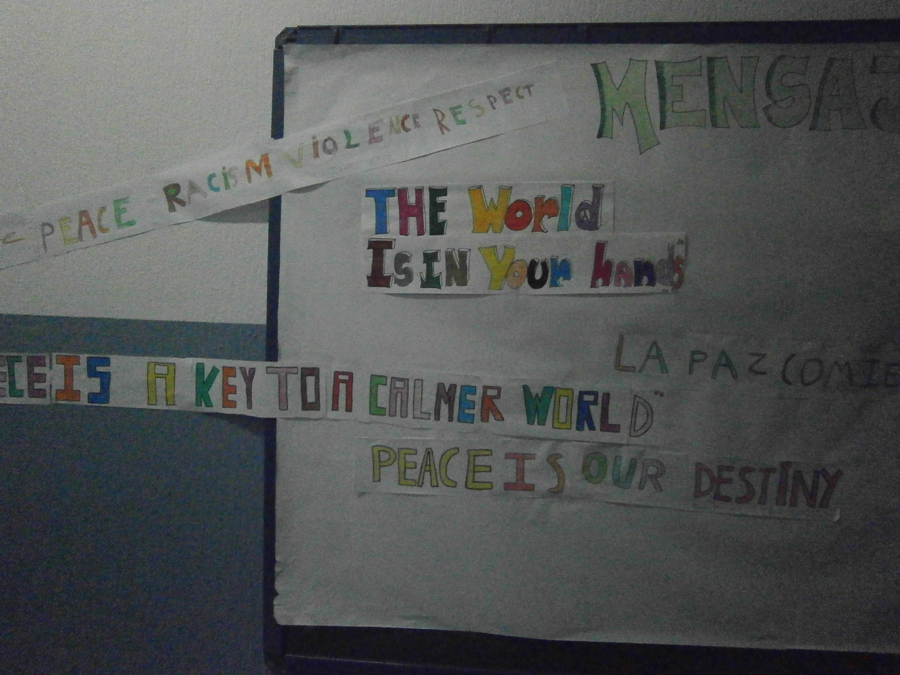 MENSAJ
< PEACE RACISM VIOLENCE RESPECT
THE World
Is IN Your hands"
LA PAZ COMIE
ECE IS A KEY TO A CALMER WORLD"
PEACE IS OUR DESTINY